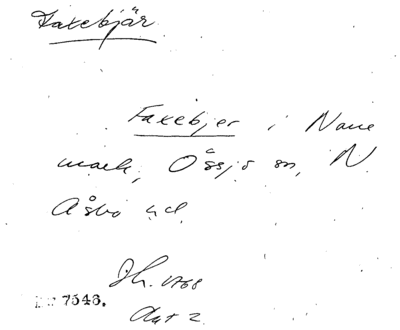 Faxebjär
Faxebjer i Nane
mark, Össjö sn, N.
Åsbo hd.
Jh. 1768
Akt 2.
7548.